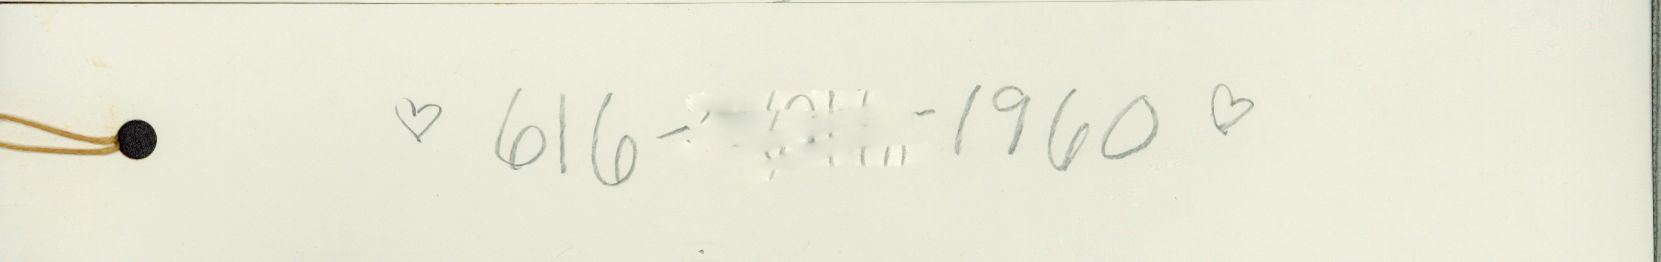 ♡ 616- -1960 ♡